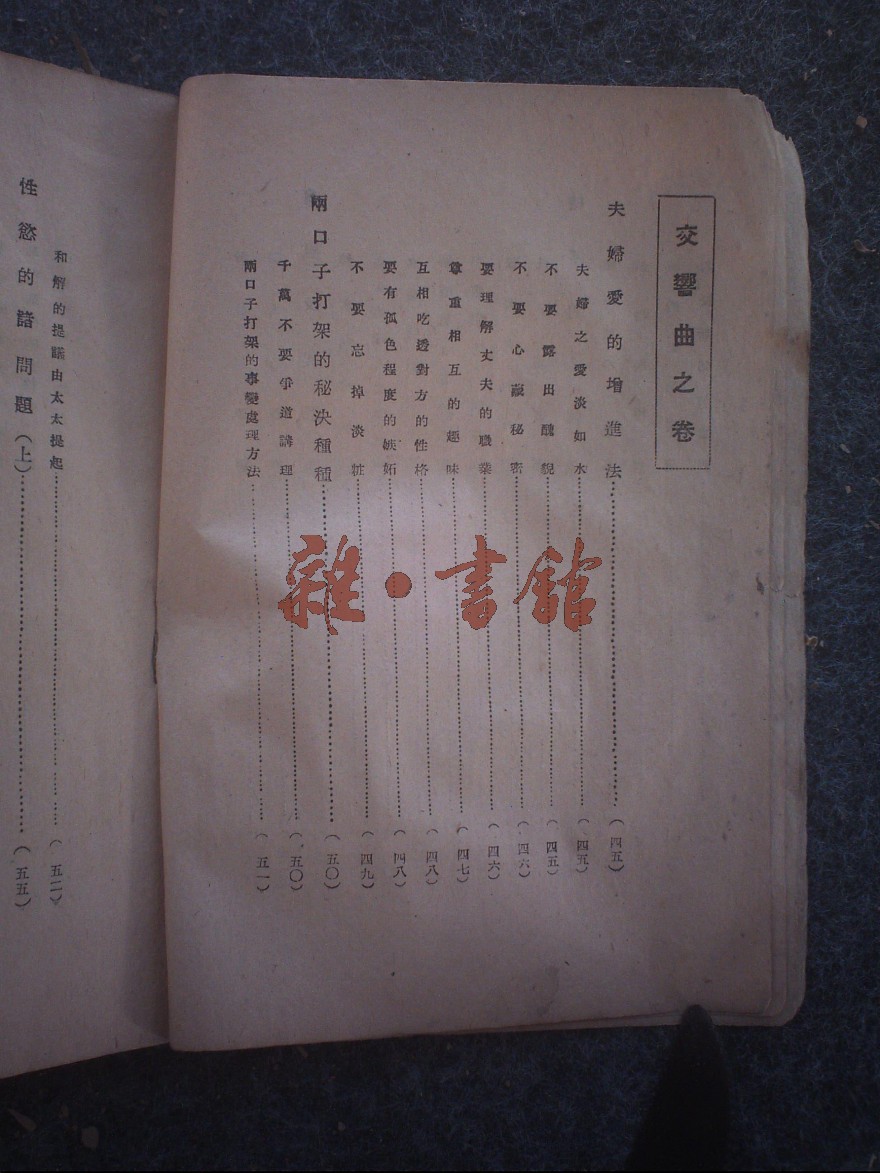 交響曲之卷
夫婦愛的增進法……(四五)
夫婦之愛淡如水……(四五)
不要露出醜貌……(四五)
不要心藏秘密……(四六)
要理解丈夫的職業……(四六)
尊重相互的趣味……(四七)
互相吃透對方的性格……(四八)
要有孤色程度的嫉妬……(四八)
不要忘掉淡粧……(四九)
兩口子打架的秘決種種……(五〇)
千萬不要爭道講理……(五〇)
兩口子打架的事變處理方法……(五一)
和解的提議由太太提起……(五二)
性慾的諸問題(上)……(五五)
雜·書館